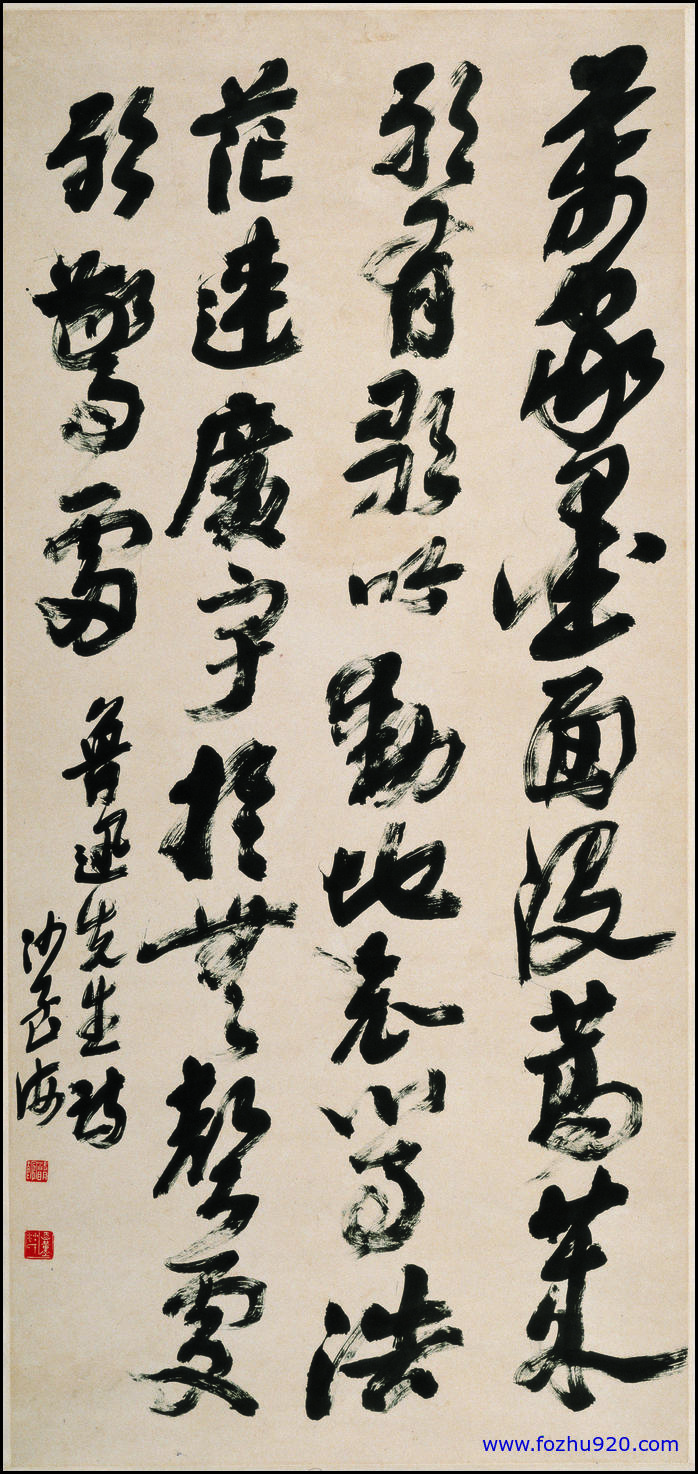 萬家墨面沒蒿萊
敢有歌吟動地哀心事浩
茫連廣宇於無聲處
聽驚雷
魯迅先生詩
沙孟海
www.fozhu920.com